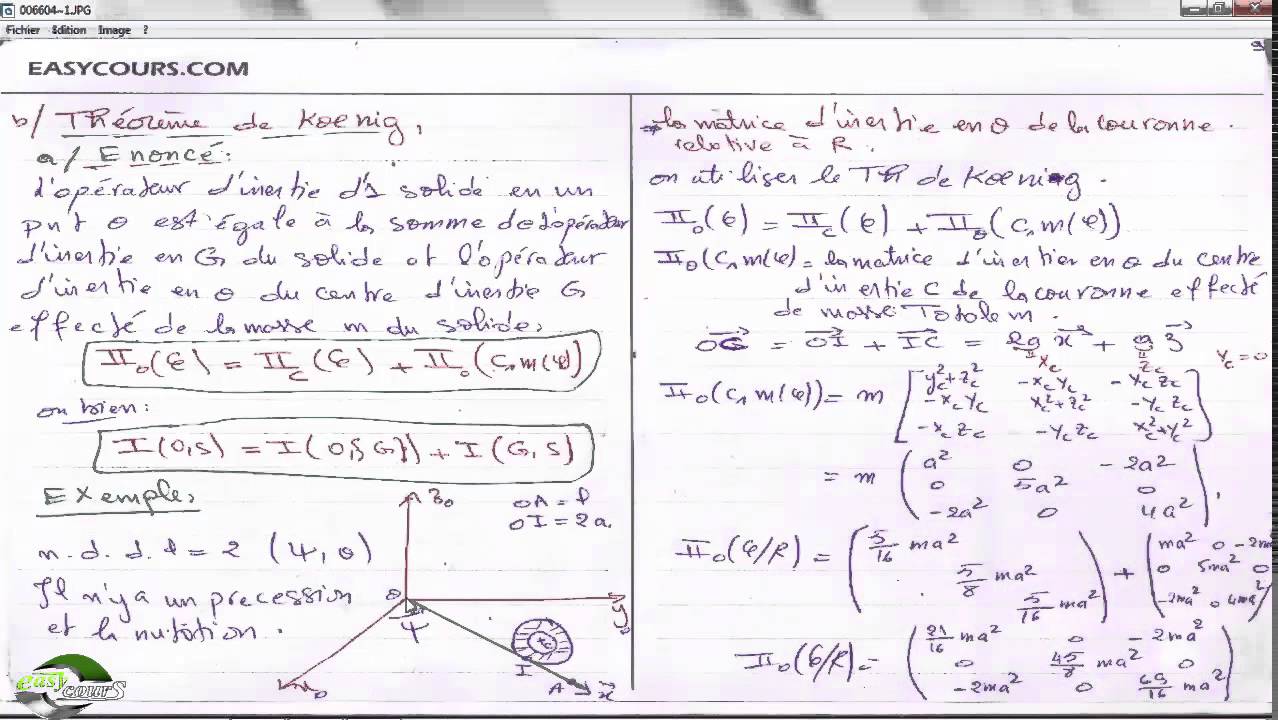 006604~1.JPG
Fichier Edition Image ?
EASYCOURS.COM
b/ Théorème de Koenig,
a/ Enoncé:
L'opérateur d'inertie d'1 solide en un
pnt O est égale à la somme de l'opérateur
d'inertie en G du solide et l'opérateur
d'inertie en O du centre d'inertie G
effecté de la masse m du solide,
II_O(C) = II_C(C) + II_O(C, m(C))
ou bien:
I(O,S) = I(O,{G}) + I(G,S)
Exemple,
n.d.d.l = 2 (ψ, θ)
Il n'y a un precession
et la nutation.
Z₀
OA = l
OI = 2a.
O
y₀
ψ
C
I
A
x
→ la matrice d'inertie en O de la couronne
relative à R.
on utiliser le TH de Koening.
II_O(C) = II_C(C) + II_O(C, m(C))
II_O(C, m(C) = la matrice d'inertier en O du centre
d'inertie C de la couronne effecté
de masse Totale m.
OG = OI + IC = 2a x + a z
x_C z_C y_C = 0
II_O(C, m(C)) = m [ y_C²+z_C² -x_C y_C -x_C z_C
-x_C y_C x_C²+z_C² -y_C z_C
-x_C z_C -y_C z_C x_C²+y_C² ]
= m ( a² 0 -2a²
0 5a² 0
-2a² 0 4a² ),
II_O(C/R) = ( 5/16 ma² 5/8 ma² 5/16 ma² ) + ( ma² 0 -2ma
0 5ma² 0
-2ma² 0 4ma² )
II_O(C/R) = ( 21/16 ma² 0 -2ma²
0 45/8 ma² 0
-2ma² 0 69/16 ma² )
easy
cours